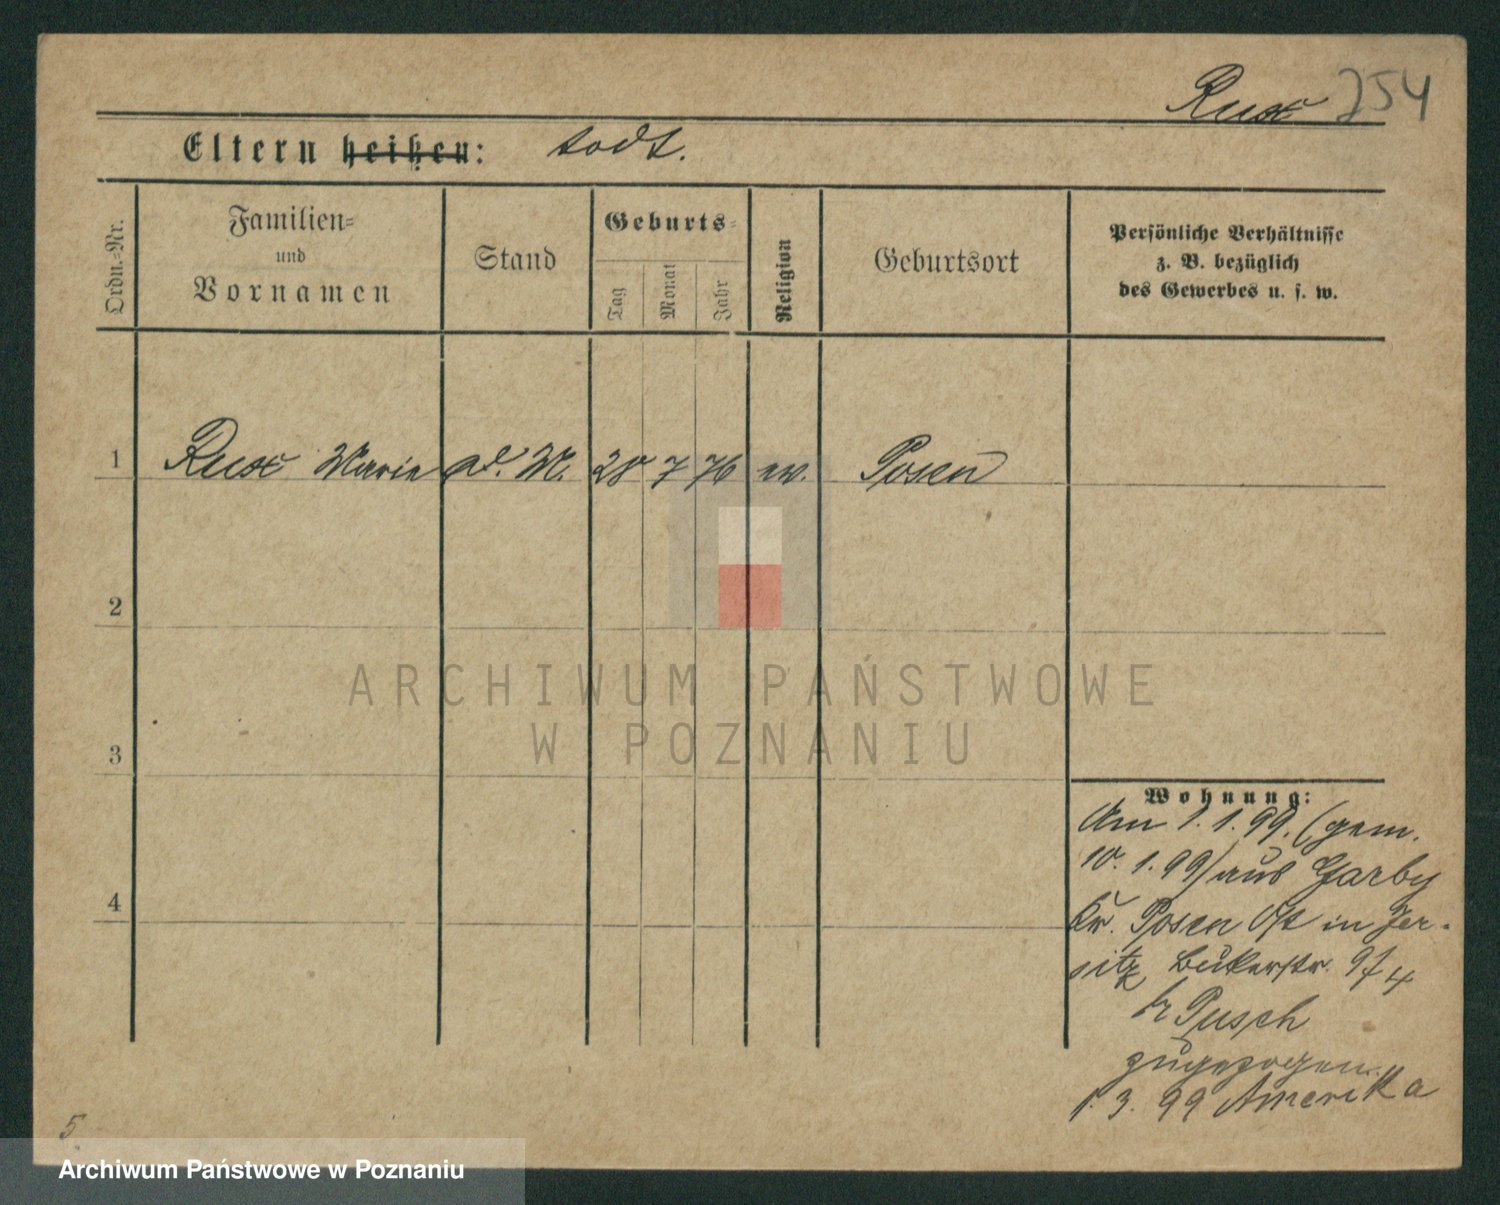 Rux 254
Eltern heißen: todt.
Ordn.-Nr.
Familien-
und
Vornamen
Stand
Geburts-
Tag
Monat
Jahr
Religion
Geburtsort
Persönliche Verhältnisse
z. B. bezüglich
des Gewerbes u. s. w.
1 Rux Marie d. M. 28 7 76 ev. Posen
2
3
4
Wohnung:
Am 1. 1. 99. (gem.
10. 1. 99) aus Garby
Kr. Posen Ost in Jer-
sitz, Bukerstr.
b/ Pusch
zugezogen.
1. 3. 99 Amerika
5
ARCHIWUM PAŃSTWOWE
W POZNANIU
Archiwum Państwowe w Poznaniu